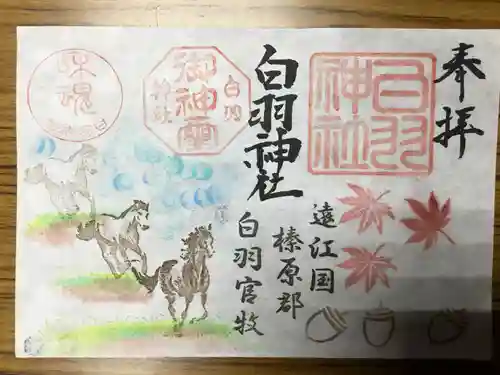 奉拝
白羽
神社
白羽神社
遠江国
榛原郡
白羽官牧
白羽
神社
御神霊